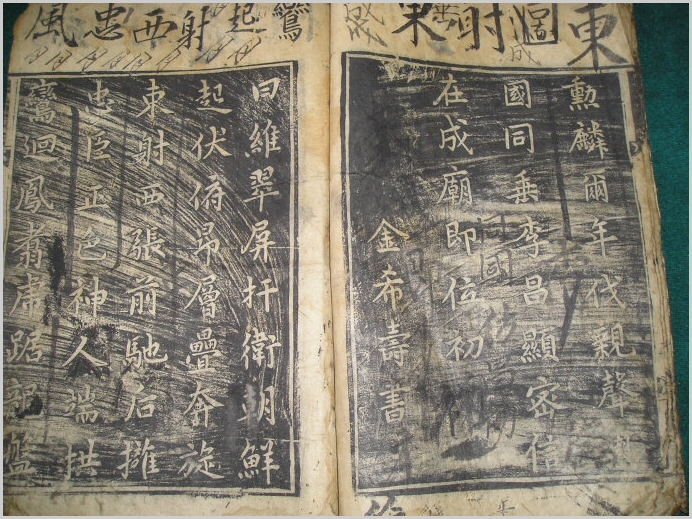 東迴射東成
勳麟爾年代親聲
國同垂李昌顯密信
在成廟即位初
金希壽書
鸞起射西忠風
曰維翠屏扞衛朝鮮
起伏俯昂層疊奔旋
東射西張前馳后擁
忠臣正色神人端拱
鸞迴鳳翥虎踞龍盤